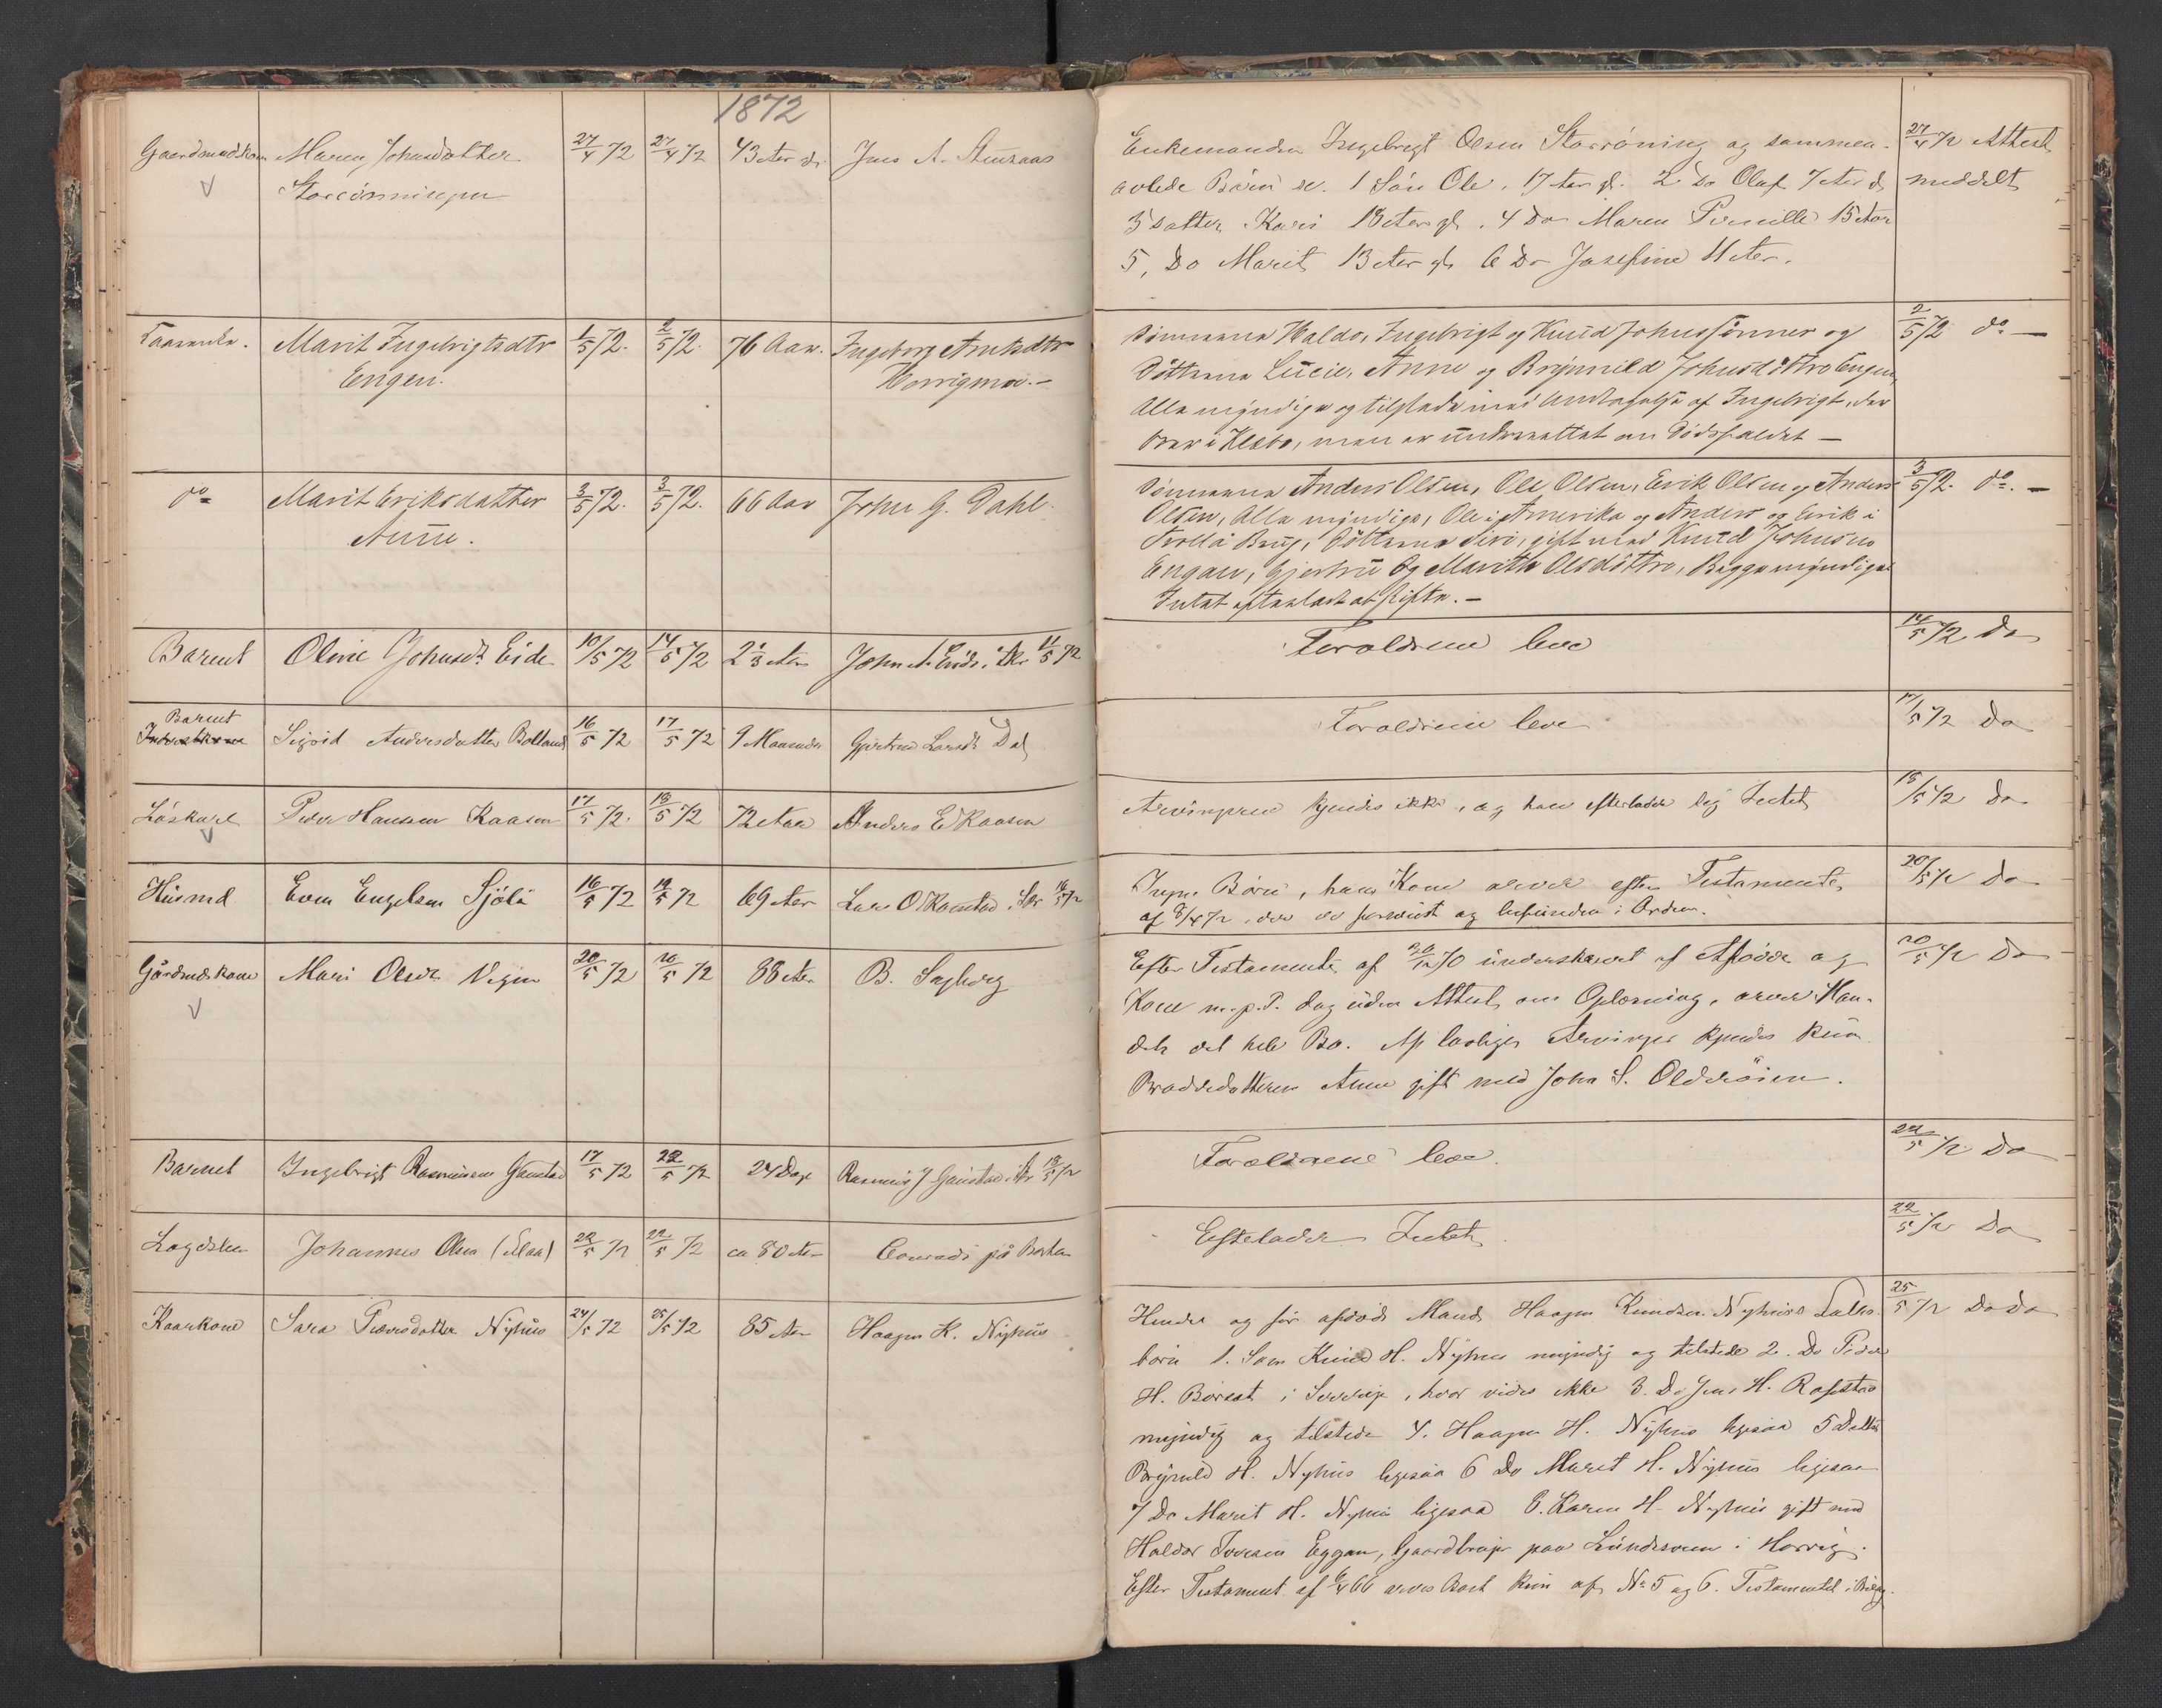 1872
Gaardmandskone Maren Johnsdatter 27/4 72 27/4 72 43 Aar gl. Jens A.
Storrönningen
Enkemanden Ingebrigt Olsen Storröning og sammen-
avlede Börn er. 1 Sön Ole, 17 Aar gl. 2 Do Oluf 7 Aar gl.
3 Datter Kari 18 Aar gl. 4 Do Maren Pernille 15 Aar
5, Do Marit 13 Aar gl. 6 Do Josefine 11 Aar.
27/4 72 Attest
meddelt
Marit Ingebrigtsdtr 1/5 72. 2/5 72. 76 Aar. Ingeborg Arntsdtr
Engen.
Sönnerne Haldo, Ingebrigt og Knud Johnssönner og
Döttrene Lucie, Anne og Brynnild Johnsdöttre Engen,
Alle myndige og tilstede med Undtagelse af Ingebrigt, der
boer i Klæbo, men er underrettet om Dödsfaldet —
2/5 72 do —
do Marit Eriksdatter 3/5 72. 3/5 72. 66 Aar John G. Dahl.
Aune.
Sönnerne Anders Olsen, Ole Olsen, Erik Olsen og Anders
Olsen, Alle myndige, Ole i Amerika og Anders og Erik i
Trolla Brug, Döttrene Siri, gift med Knud Johnsen
Engen, Gjertru og Marith Olsdöttre, Begge myndige
Intet efterladt at skifte. —
3/5 72. do. —
Barnet Oline Johnsdt Eide 10/5 72 14/5 72 2 1/3 Aar John A. Eide. Skr 11/5 72
Foraldrene leve
14/5 72 Do
Barnet
Sigrid Andersdatter Bolland 16/5 72 17/5 72 9 Maaneder Gjertrud Larsdt Dal
Foraldrene leve
17/5 72 Do
Löskarl Peder Hansen Kaasen 17/5 72. 18/5 72 72 Aar Anders E Kaasen
Arvingerne kjendes ikke, og han efterlader sig Intet
18/5 72 Do
Husmd Even Engelsen Sjölå 16/5 72 18/5 72 69 Aar Lars O Ramstad. Skr 16/5 72
Ingen Börn, hans Kone arver efter Testamente
af 8/4 72, der er forevist og befunden i Orden.
20/5 72 Do
Gårdmdskone Mari Olsdt Vigen 20/5 72 20/5 72 88 Aar B. Sagberg
Efter Testamente af 70 underskrevet af Afdöde og
Kone m.p.P. dog uden Attest om Oplæsning, arver Man-
den det hele Bo. Af lovlige Arvinger kjendes kun
Broderdatteren Anne gift med John S. Olderöien.
20/5 72 Do
Barnet Ingebrigt Rasmussen Gaustad 17/5 72 22/5 72 24 Dage Rasmus J Gaustad. Skr 18/5 72
Foraldrene leve.
22/5 72 Do
Lægdslem Johannes Olsen 22/5 72 22/5 72 ca 80 Aar Conradi på Borten
Efterlader Intet.
22/5 72 Do
Kaarkone Sara Pedersdatter Nyhus 24/5 72 25/5 72 85 Aar Haagen K. Nyhus
Hendes og för afdöde Mand Haagen Knudsen Nyhuus Fælles-
börn 1. Sön Knud H. Nyhus myndig og tilstede 2. Do Peder
H. Börset i Sverige, hvor vides ikke 3. Do Jens H. Rofstad
myndig og tilstede 4. Haagen H. Nyhus ligesaa 5 Datter
Brynild H. Nyhus ligesaa 6 Do Marit H. Nyhus ligesaa
7 Do Marit H. Nyhus ligesaa 8. Karen H. Nyhus gift med
Haldor Iversen Eggan, Gaardbruger paa Lundsveen i Horrig.
Efter Testament af 66 arves Boet kun af No 5 og 6. Testamentet i Bilag.
25/5 72 Do Do